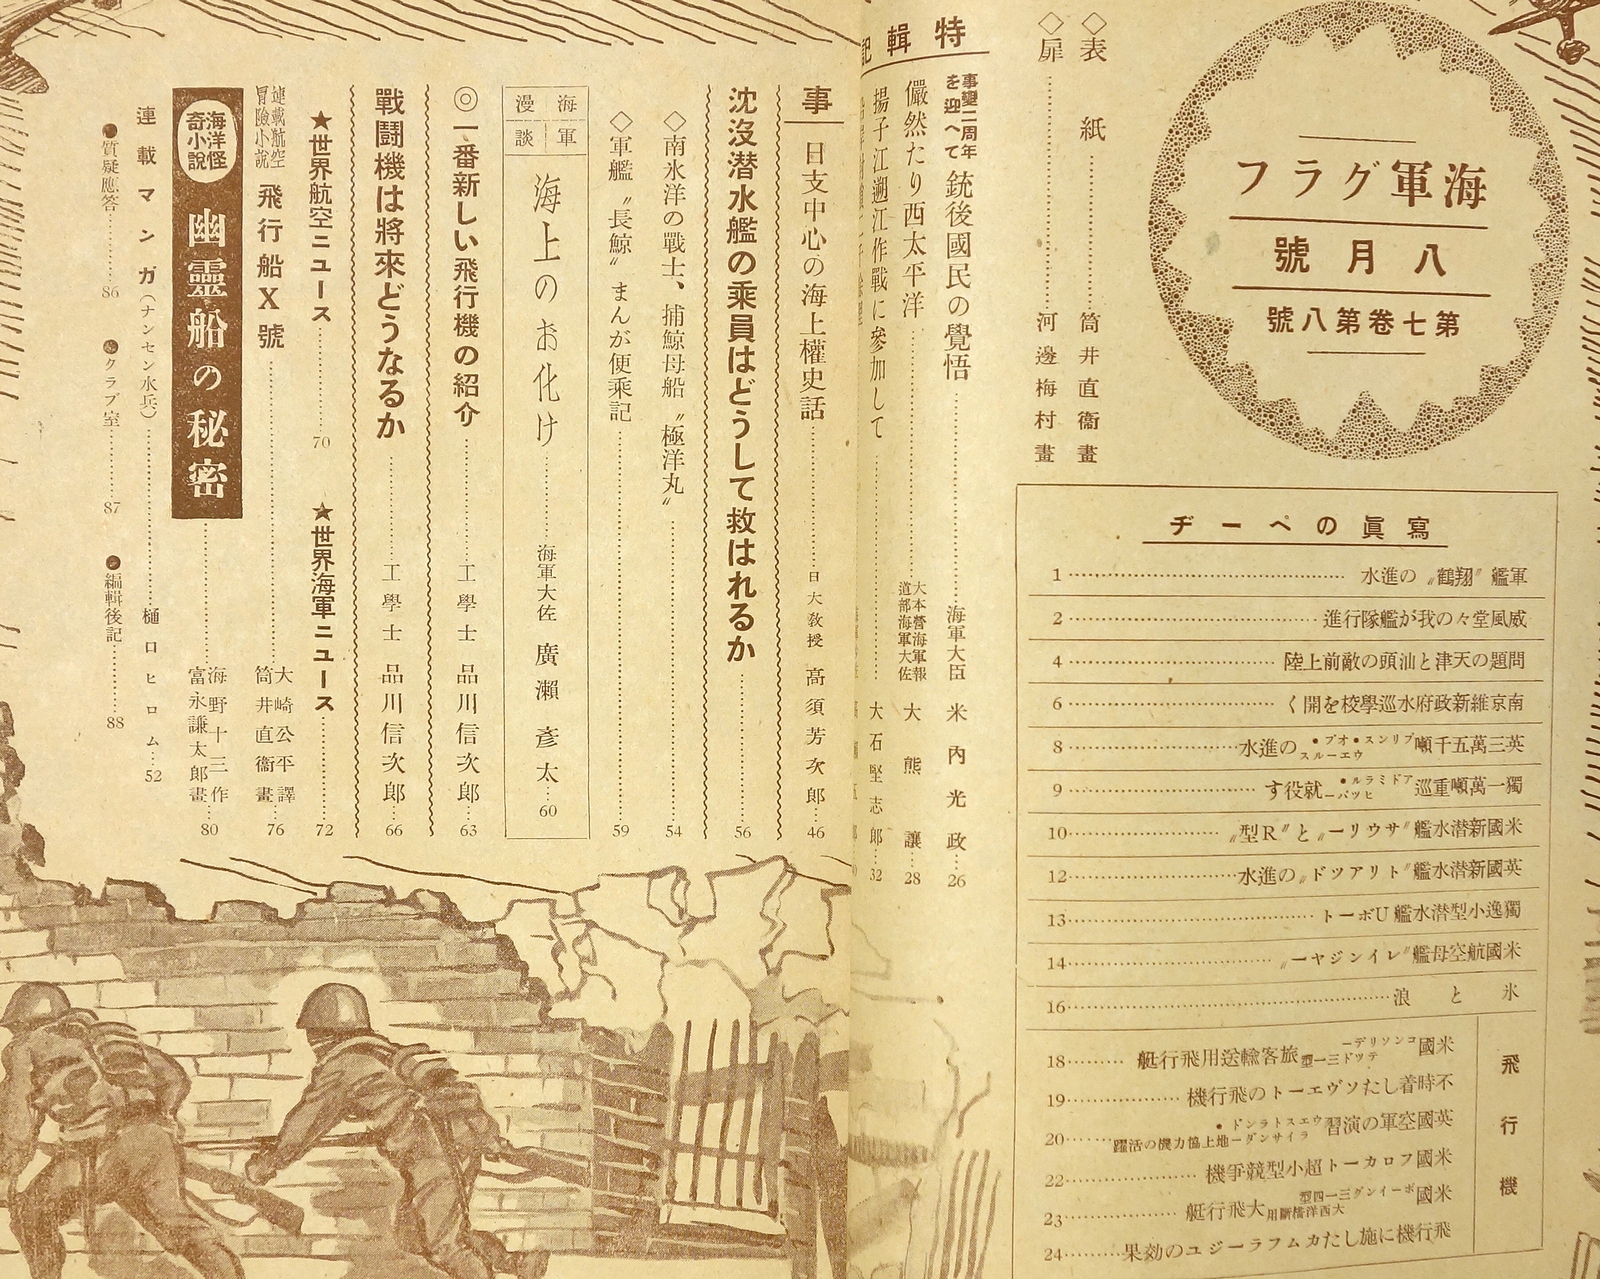 海軍グラフ
八月號
第七卷第八號
◇表紙……筒井直衞畫
◇扉……河邊梅村畫
寫眞のページ
軍艦〝翔鶴〟の進水……1
威風堂々の我が艦隊行進……2
問題の天津と汕頭の敵前上陸……4
南京維新政府水巡學校を開く……6
英三萬五千噸プリンス・オブ・ウエールスの進水……8
獨一萬噸重巡アドミラル・ヒツパー就役す……9
米國新潛水艦〝サウリー〟と〝R型〟……10
英國新潛水艦〝トリアツド〟の進水……12
獨逸小型潛水艦Uボート……13
米國航空母艦〝レインジヤー〟……14
氷と浪……16
飛行機
米國コンソリデーテツド三一型旅客輸送用飛行艇……18
不時着したソヴエートの飛行機……19
英國空軍の演習ウエストランド・ライサンダー地上協力機の活躍……20
米國フロカート超小型競爭機……22
米國ボーイング三一四型大西洋橫斷用大飛行艇……23
飛行機に施したカムフラージユの効果……24
特輯記
事變二周年を迎へて 銃後國民の覺悟……海軍大臣 米內光政……26
儼然たり西太平洋……大本營海軍報道部海軍大佐 大熊讓……28
揚子江遡江作戰に參加して……大石堅志郎……32
事
日支中心の海上權史話……日大敎授 高須芳次郎……46
沈沒潛水艦の乘員はどうして救はれるか……56
◇南氷洋の戰士、捕鯨母船〝極洋丸〟……54
◇軍艦〝長鯨〟まんが便乘記……59
海軍漫談
海上のお化け……海軍大佐 廣瀨彥太……60
◎一番新しい飛行機の紹介……工學士 品川信次郎……63
戰鬪機は將來どうなるか……工學士 品川信次郎……66
★世界航空ニュース……70
★世界海軍ニュース……72
連載航空冒險小說 飛行船X號……大崎公平譯 筒井直衞畫……76
海洋怪奇小說 幽靈船の秘密……海野十三作 富永謙太郎畫……80
連載マンガ(ナンセン水兵)……樋口ヒロム……52
●質疑應答……86
クラブ室……87
●編輯後記……88